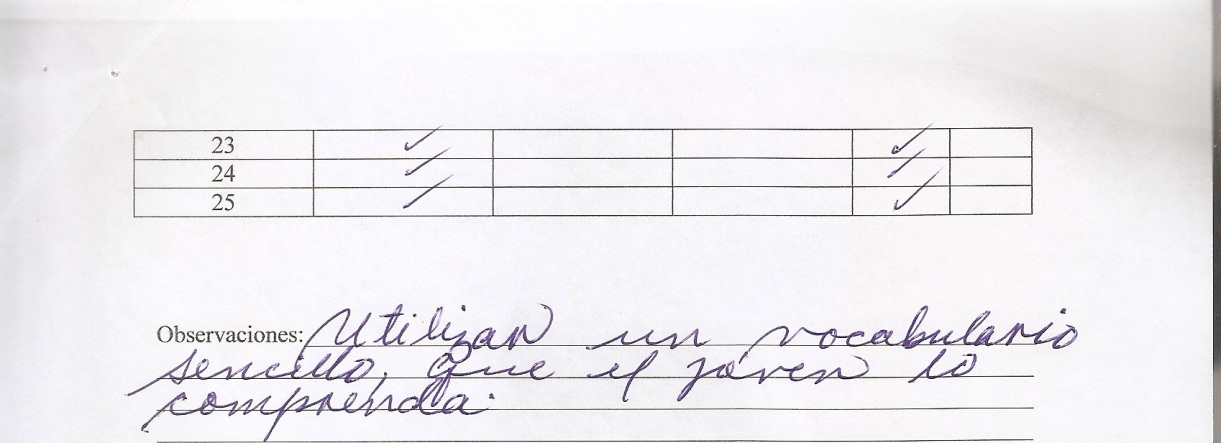 23 ✓ ✓
24 ✓ ✓
25 ✓ ✓
Observaciones: Utilizar un vocabulario
sencillo, que el joven lo
comprenda.